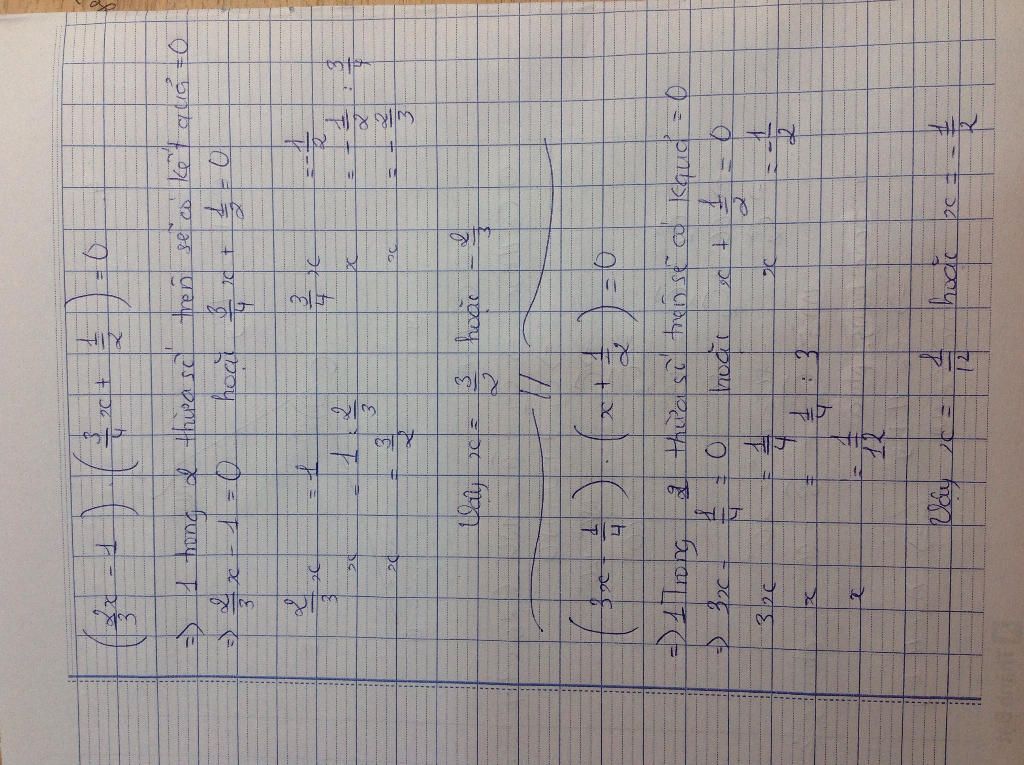 (2/3x - 1) . (3/4x + 1/2) = 0
=) 1 trong 2 thừa số trên sẽ có kết quả = 0
=) 2/3x - 1 = 0 hoặc 3/4x + 1/2 = 0
2/3x = 1 3/4x = -1/2
x = 1 : 2/3 x = -1/2 : 3/4
x = 3/2 x = -2/3
Vậy x = 3/2 hoặc -2/3
(3x - 1/4) . (x + 1/2) = 0
=) 1 Trong 2 thừa số trên sẽ có kquả = 0
=) 3x - 1/4 = 0 hoặc x + 1/2 = 0
3x = 1/4 x = -1/2
x = 1/4 : 3
x = 1/12
Vậy x = 1/12 hoặc x = -1/2